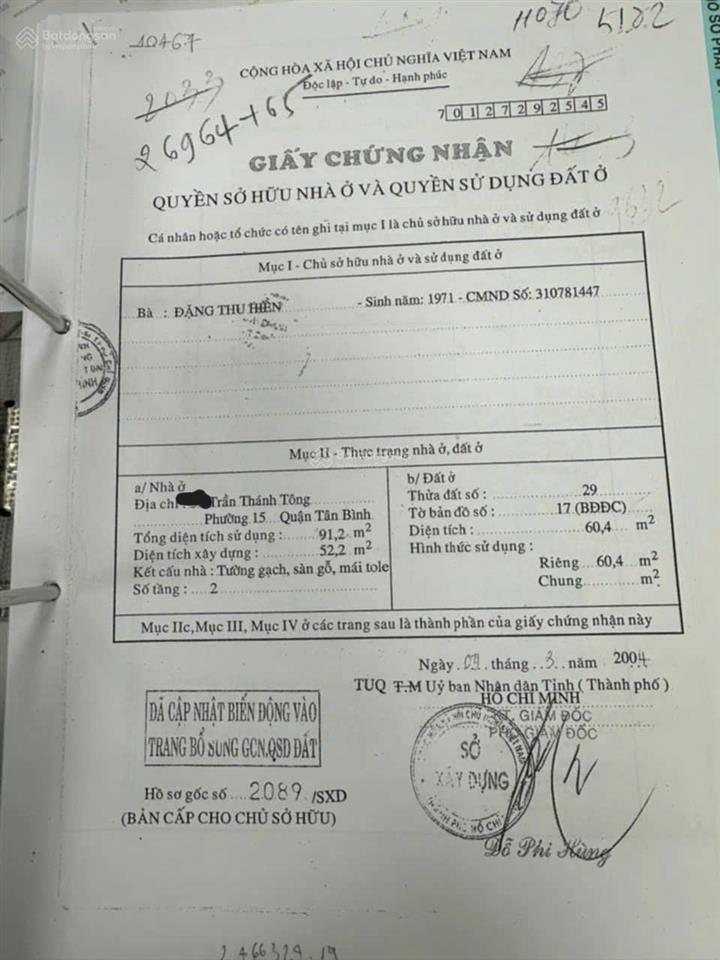 Batdongsan
10467
11070 5122
CỘNG HÒA XÃ HỘI CHỦ NGHĨA VIỆT NAM
Độc lập - Tự do - Hạnh phúc
2033
26964+65
701272925 45
GIẤY CHỨNG NHẬN
QUYỀN SỞ HỮU NHÀ Ở VÀ QUYỀN SỬ DỤNG ĐẤT Ở
Cá nhân hoặc tổ chức có tên ghi tại mục I là chủ sở hữu nhà ở và sử dụng đất ở
Mục I - Chủ sở hữu nhà ở và sử dụng đất ở
Bà : ĐẶNG THU HIỀN - Sinh năm: 1971 - CMND Số: 310781447
Mục II - Thực trạng nhà ở, đất ở
a/ Nhà ở
Địa chỉ Trần Thánh Tông
Phường 15 Quận Tân Bình
Tổng diện tích sử dụng : 91,2 m²
Diện tích xây dựng : 52,2 m²
Kết cấu nhà : Tường gạch, sàn gỗ, mái tole
Số tầng : 2
b/ Đất ở
Thửa đất số : 29
Tờ bản đồ số : 17 (BĐĐC)
Diện tích : 60,4 m²
Hình thức sử dụng :
Riêng 60,4 m²
Chung m²
Mục IIc, Mục III, Mục IV ở các trang sau là thành phần của giấy chứng nhận này
Ngày tháng 3 năm 2004
TUQ T.M Uỷ ban Nhân dân Tỉnh ( Thành phố )
HỒ CHÍ MINH
GIÁM ĐỐC
GIÁM ĐỐC
SỞ
XÂY DỰNG
ĐÃ CẬP NHẬT BIẾN ĐỘNG VÀO
TRANG BỔ SUNG GCN,QSD ĐẤT
Hồ sơ gốc số 2089 /SXD
(BẢN CẤP CHO CHỦ SỞ HỮU)
Đỗ Phi Hùng